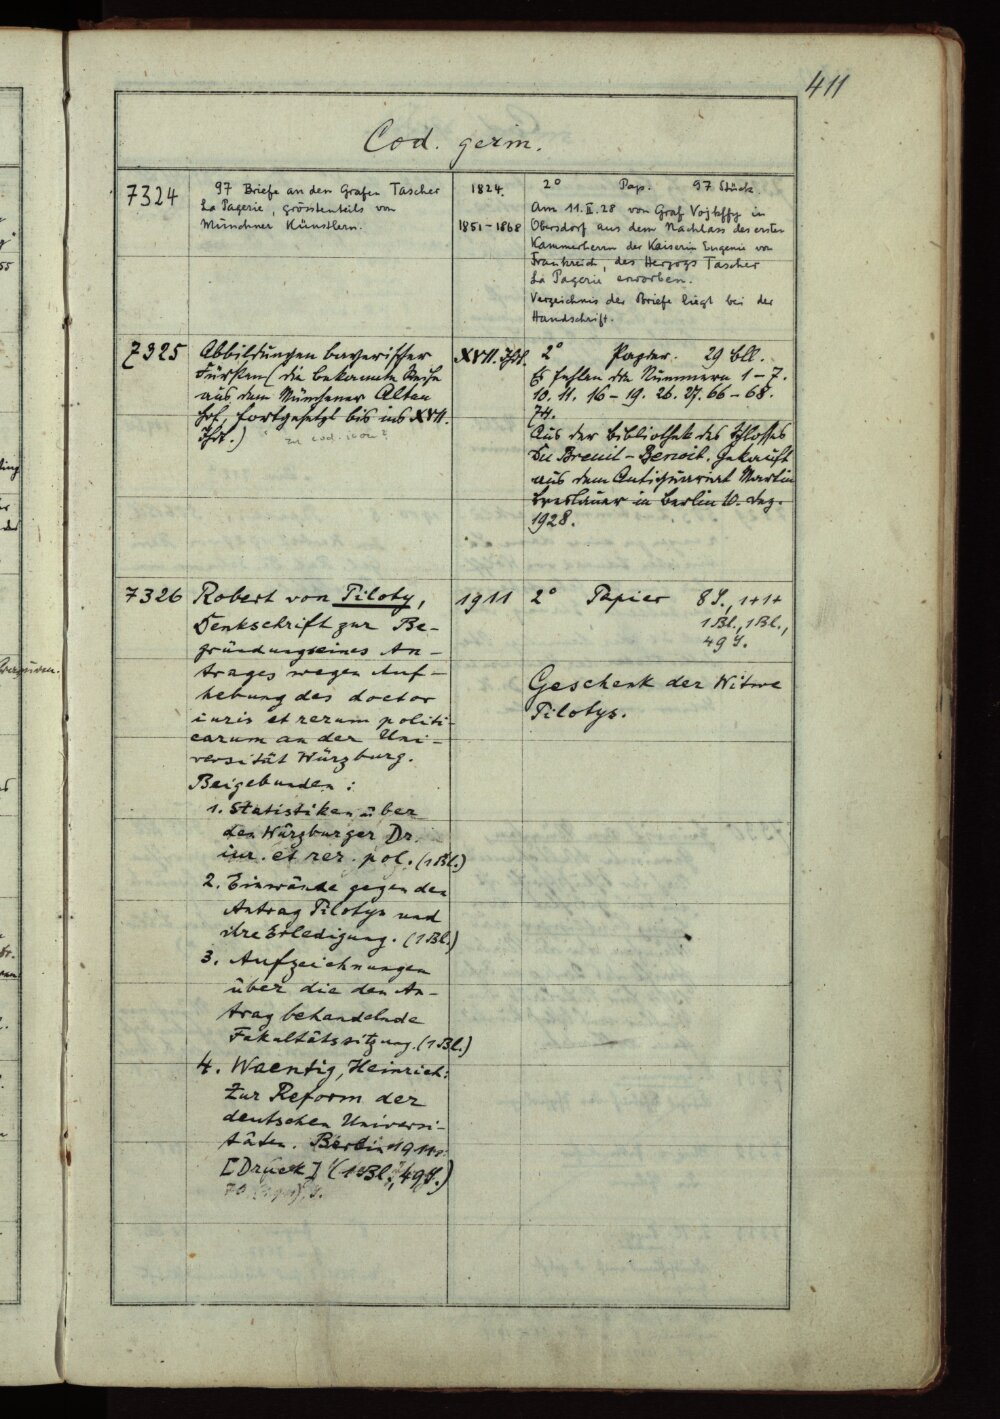 411
Cod. germ.
7324
97 Briefe an den Grafen Tascher
La Pagerie, grösstenteils von
Münchner Künstlern.
1824.
1851-1868
2° Pap. 97 Stück.
Am 11.II.28 von Graf Vojkffy in
Obersdorf aus dem Nachlass des ersten
Kammerherrn der Kaiserin Eugenie von
Frankreich, des Herzogs Tascher
La Pagerie erworben.
Verzeichnis der Briefe liegt bei der
Handschrift.
7325
Abbildungen bayerischer
Fürsten (die bekannte Reihe
aus dem Münchener Alten
Hof, fortgesetzt bis ins XVII.
Jhdt.)
zu cod. icon?
XVII. Jhdt.
2° Papier. 29 Bll.
Es fehlen die Nummern 1-7.
10. 11. 16-19. 26. 27. 66-68.
74.
Aus der Bibliothek des Schlosses
Du Breuil-Benoit. Gekauft
aus dem Antiquariat Martin
Breslauer in Berlin 10. Dez.
1928.
7326
Robert von Piloty,
Denkschrift zur Be-
gründung eines An-
trages wegen Auf-
hebung des doctor
iuris et rerum politi-
carum an der Uni-
versität Würzburg.
Beigebunden:
1. Statistiken über
den Würzburger Dr.
iur. et rer. pol. (1 Bl.)
2. Einwände gegen den
Antrag Pilotys und
ihre Erledigung. (1 Bl.)
3. Aufzeichnungen
über die den An-
trag behandelnde
Fakultätssitzung. (1 Bl.)
4. Waentig, Heinrich:
Zur Reform der
deutschen Universi-
täten. Berlin 1911.
[Druck] (1 Bl., 49 S.)
1911
2° Papier 8 S., 1+1+
1 Bl., 1 Bl.,
49 S.
Geschenk der Witwe
Pilotys.